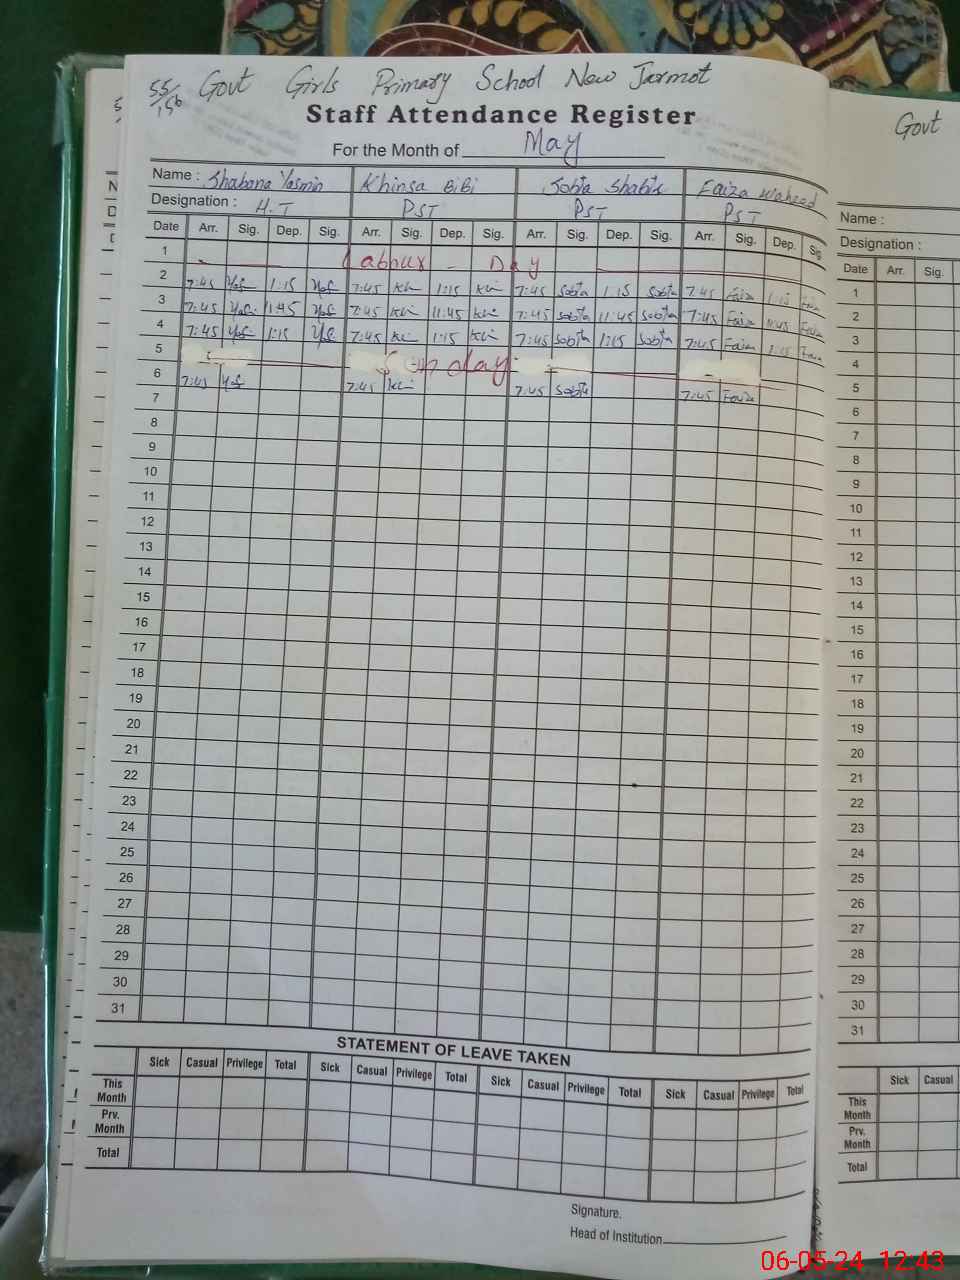 55/156 Govt Girls Primary School New Jarmot
Staff Attendance Register
For the Month of May
Name : Shabana Yasmin Khinsa BiBi Sobia Shabir Faiza Waheed
Designation : H.T PST PST PST
Date Arr. Sig. Dep. Sig. Arr. Sig. Dep. Sig. Arr. Sig. Dep. Sig. Arr. Sig. Dep. Sig
1 Labour - Day
2 7:45 Yas 1:15 Yas 7:45 Khi 1:15 Khi 7:45 Sobia 1:15 Sobia 7:45 Faiza 1:15 Faiza
3 7:45 Yas 11:45 Yas 7:45 Khi 11:45 Khi 7:45 Sobia 11:45 Sobia 7:45 Faiza 11:45 Faiza
4 7:45 Yas 1:15 Yas 7:45 Khi 1:15 Khi 7:45 Sobia 1:15 Sobia 7:45 Faiza 1:15 Faiza
5 Sunday
6 7:45 Yas 7:45 Khi 7:45 Sobia 7:45 Faiza
7
8
9
10
11
12
13
14
15
16
17
18
19
20
21
22
23
24
25
26
27
28
29
30
31
STATEMENT OF LEAVE TAKEN
Sick Casual Privilege Total Sick Casual Privilege Total Sick Casual Privilege Total Sick Casual Privilege Total
This Month
Prv. Month
Total
Signature.
Head of Institution
Govt
Name :
Designation :
Date Arr. Sig.
1
2
3
4
5
6
7
8
9
10
11
12
13
14
15
16
17
18
19
20
21
22
23
24
25
26
27
28
29
30
31
Sick Casual
This Month
Prv. Month
Total
06-05-24 12:43